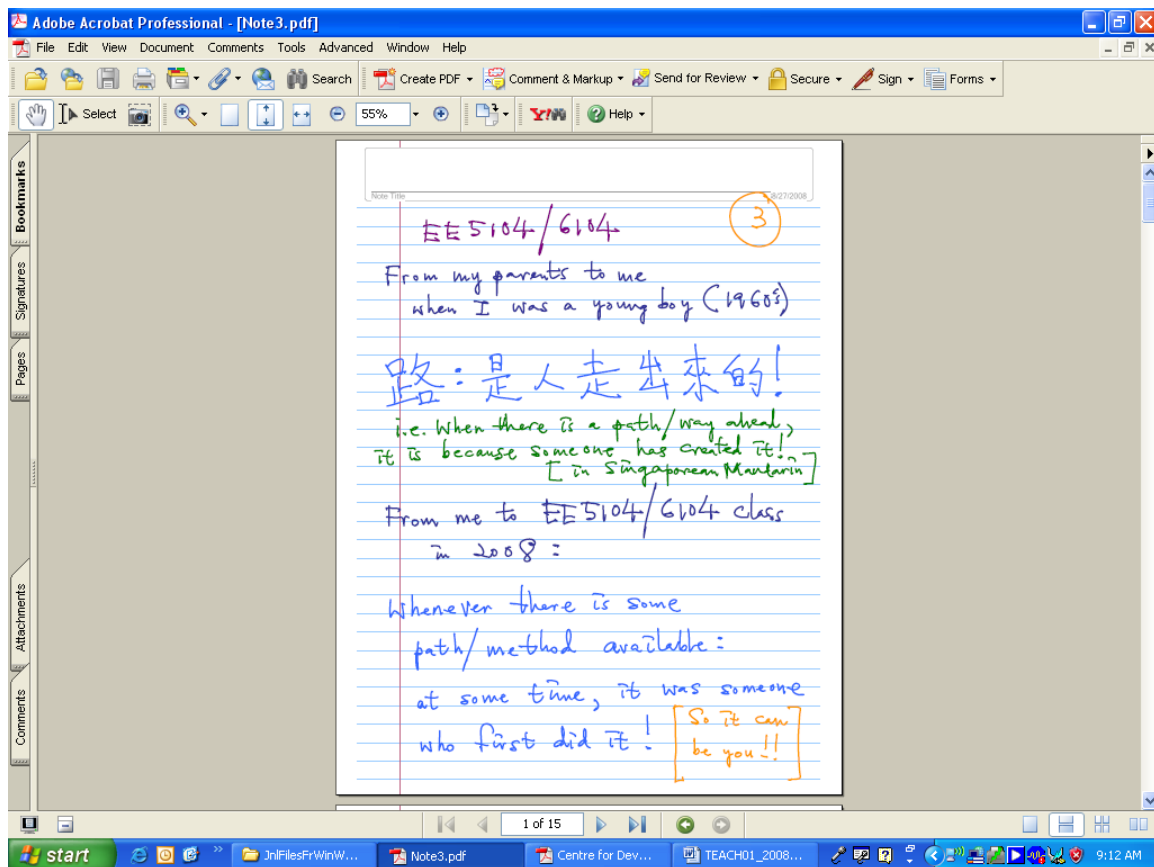 Adobe Acrobat Professional - [Note3.pdf]
File Edit View Document Comments Tools Advanced Window Help
Search Create PDF Comment & Markup Send for Review Secure Sign Forms
Select 55% Y! Help
Bookmarks
Signatures
Pages
Attachments
Comments
Note Title
8/27/2008
EE5104/6104
3
From my parents to me
when I was a young boy (1960's)
路:是人走出來的!
i.e. When there is a path/way ahead,
it is because someone has created it!
[in Singaporean Mandarin]
From me to EE5104/6104 class
in 2008:
Whenever there is some
path/method available:
at some time, it was someone
who first did it!
[So it can
be you!!]
1 of 15
start JnlFilesFrWinW... Note3.pdf Centre for Dev... TEACH01_2008... 9:12 AM